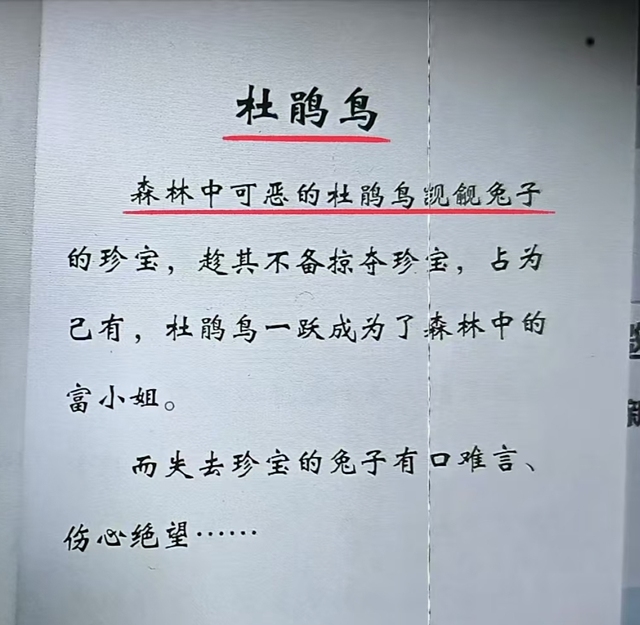 杜鹃鸟
森林中可恶的杜鹃鸟觊觎兔子
的珍宝，趁其不备掠夺珍宝，占为
己有，杜鹃鸟一跃成为了森林中的
富小姐。
而失去珍宝的兔子有口难言、
伤心绝望……